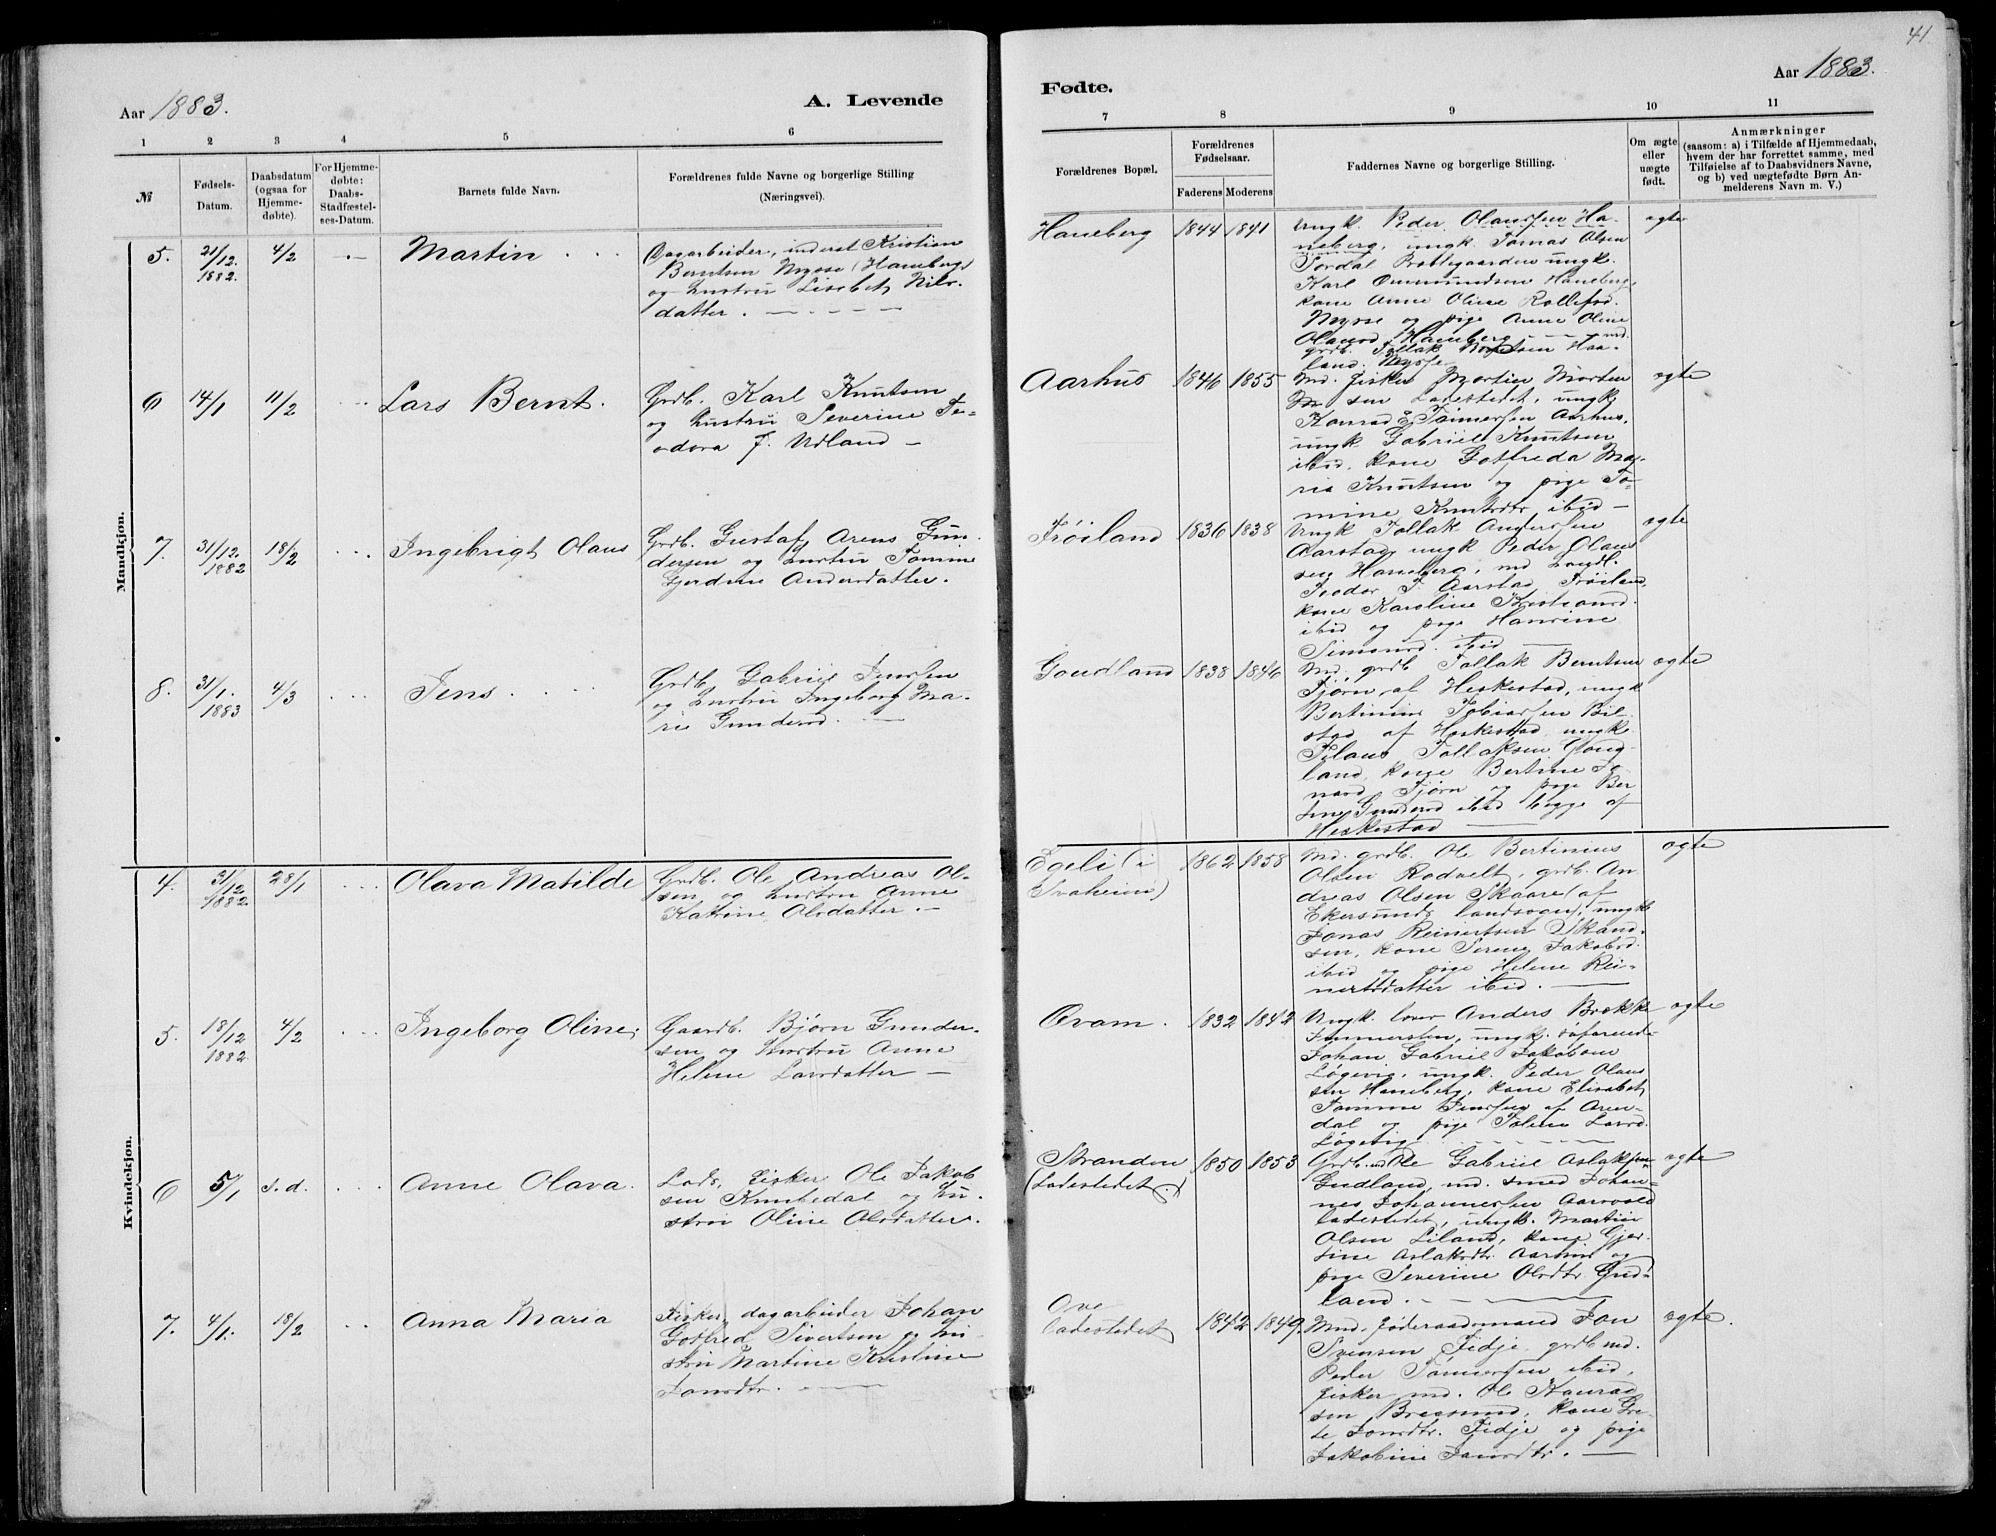 41
Aar 1883.
A. Levende
Fødte.
Aar 1883.
1 2 3 4 5 6
7 8 9 10 11
№
Fødsels-
Datum.
Daabsdatum
(ogsaa for
Hjemme-
døbte).
For Hjemme-
døbte:
Daabs-
Stadfæstel-
ses-Datum.
Barnets fulde Navn.
Forældrenes fulde Navne og borgerlige Stilling
(Næringsvei).
Forældrenes Bopæl.
Forældrenes
Fødselsaar.
Faderens
Moderens
Faddernes Navne og borgerlige Stilling.
Om ægte
eller
uægte
født.
Anmærkninger
(saasom: a) i Tilfælde af Hjemmedaab,
hvem der har forrettet samme, med
Tilføielse af to Daabsvidners Navne,
og b) ved uægtefødte Børn An-
melderens Navn m. V.)
Mandkjøn.
5.
21/12
1882.
4/2
Martin
Dagarbeider, inderst Kristian
Berntsen Mysse (Haneberg)
og hustru Lisebet Nils-
datter.
Haneberg
1844
1841
Ungk. Peder Olaussen Ha-
neberg, ungk. Tomas Olsen
ungk.
Karl Ommundsen Haneberg
kone Anne Oline
Mysse og pige Anne Oline
Olausd. Haneberg
grdb. Tollak Berntsen Haa-
land, Mysse
ægte
6
14/1
11/2
Lars Bernt.
Grdb. Karl Knutsen
og hustru Severine Te-
odora J. Udland
Aarhus
1846
1855
Md. fisker Morten Morten
sen Ladestedet, ungk.
Konrad E. Tønnessen Aarhus,
ungk. Gabriel Knutsen
ibid, kone Gotfreda Ma-
ria Knutsen og pige To-
mine Knutsdtr. ibid
ægte
7.
31/12
1882
18/2
Ingebrigt Olaus
Grdb. Gustaf Arens Gun-
dersen og hustru Tomine
Gjerdine Andersdatter.
Frøiland
1836
1838
Ungk. Tollak Andersen
Aarstad, ungk. Peder Olaus
sen Haneberg, md
Teodor T. Aarstad Frøiland,
kone Karoline
ibid og pige Hansine
Simonsd. ibid
ægte
8.
31/1
1883
4/3
Jens
Grdb. Gabriel Jensen
og hustru Ingeborg Ma-
rie Gundersd.
Goudland
1838
1846
Md. grdb Tollak Berntsen
Tjørn af Heskestad, ungk
Bertinius Tobiassen Bil-
stad af Heskestad, ungk
Tollaksen Goug-
land, kone Bertine
Tjørn og pige Ber
tine Gundersd ibid begge af
Heskestad
ægte
Kvindekjøn.
4.
31/12
1882
28/1
Olava Matilde
Grdb. Ole Andreas Ol-
sen og hustru Anne
Katrine Olsdatter.
Egeli (i
Svaheim)
1862
1858
Md. grdb. Ole Bertinius
Olsen Rodvelt, grdb. An
dreas Olsen Skaare (af
Ekersunds landsogn), ungk
Jonas Reinertsen Skaad-
sen, kone Serene Jakobsd.
ibid og pige Helene Rei-
nertsdatter ibid.
ægte
5.
18/12
1882
4/2
Ingeborg Oline,
Gaardb. Bjørn Gunder-
sen og hustru Anne
Helene Larsdatter
Qvam.
1832
1842
Ungk. lover Anders Brekke
ungk. søfarende
Johan Gabriel Jakobsen
Løgevig, ungk. Peder Olaus
sen Haneberg, kone Elisabet
Tomine Jensen af Aren-
dal og pige Larsd.
Løgevig
ægte
6
5/1
s.d.
Anne Olava.
Lods, fisker Ole Jakob
sen Knubedal og hu-
stru Oline Olsdatter.
Stranden
(Ladestedet.)
1850
1853
Grdb. md Ole Gabriel Aslaksen
Gudland, md. smed Johan-
nes Johannessen Aarvold
ladestedet, ungk. Martin
Olsen Liland, kone Gjer-
tine Aslaksdtr. og
pige Severine Olsdtr. Gud-
land.
ægte
7.
4/1.
18/2
Anna Maria
Fisker, dagarbeider Johan
Gotfred Sivertsen og hu-
stru Martine Kristine
Jonsdtr.
Ove
ladestedet
1842
1849.
Md. føderaadsmand Jon
Svensen Fidje, grdb md.
Peder Tønnessen ibid,
fisker md. Ole Konrad
sen kone Gre-
te Jonsdtr. Fidje og pige
Jakobine Jonsdtr.
ægte.